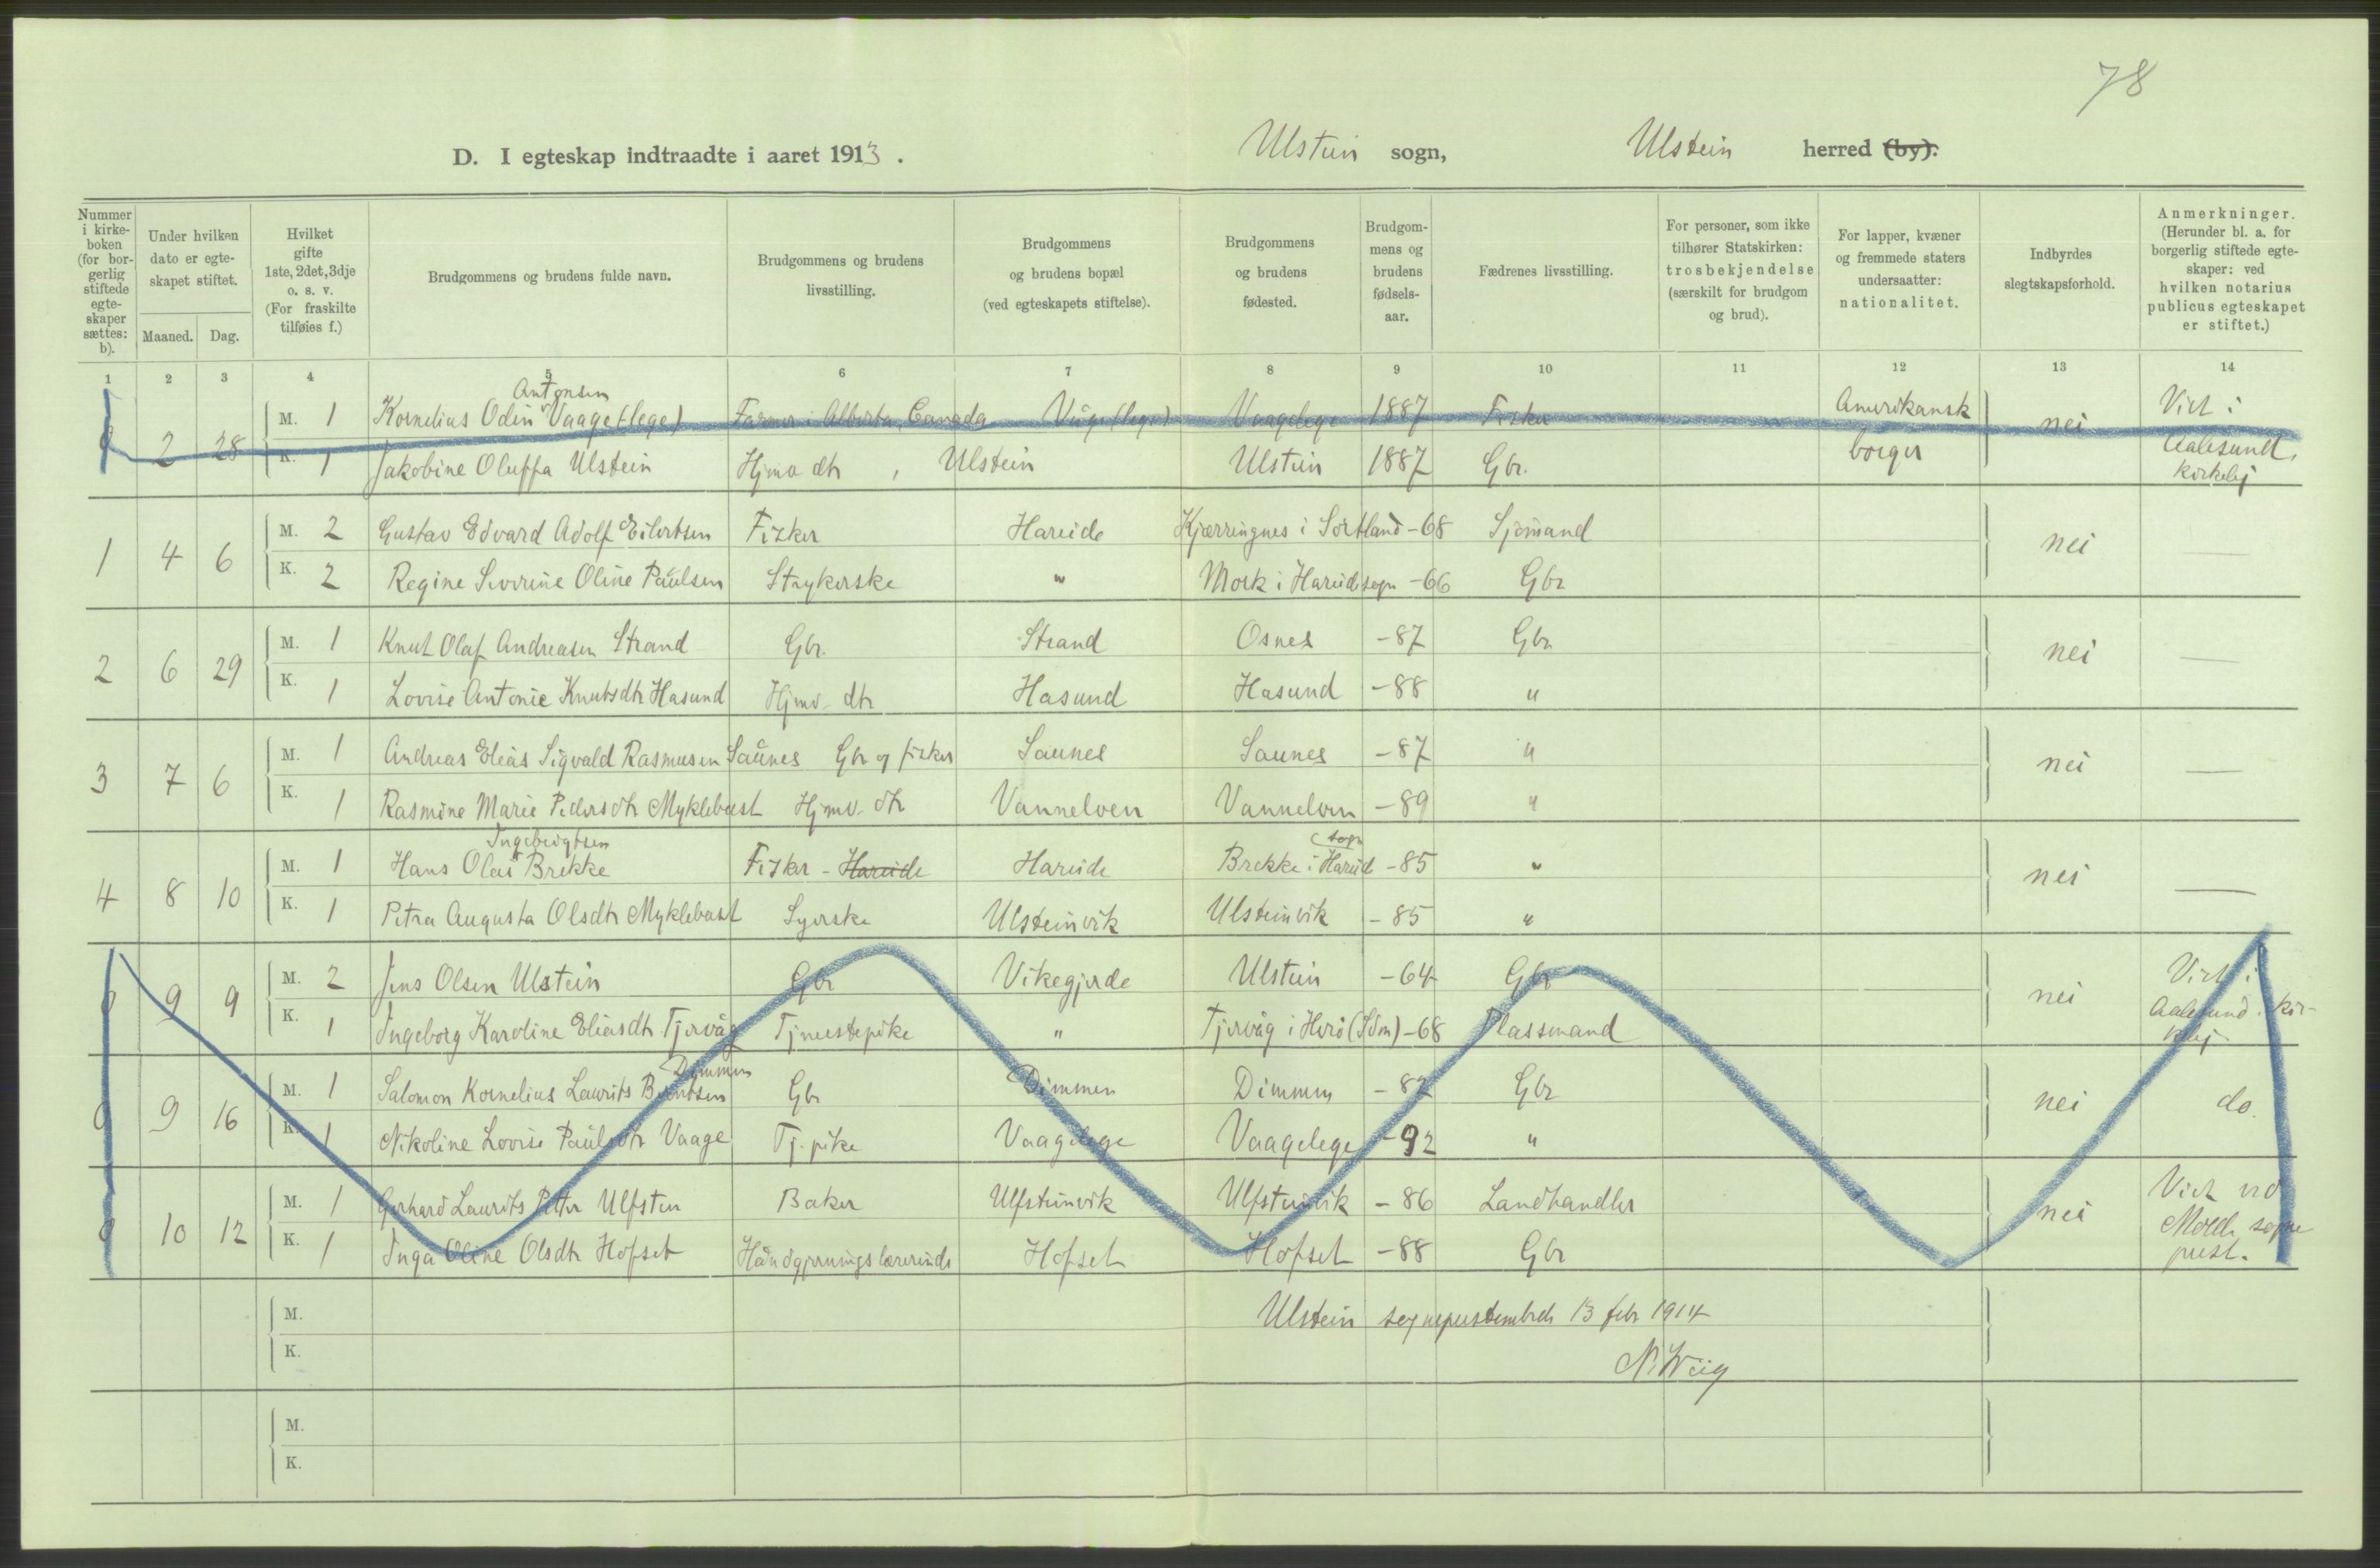 78
D. I egteskap indtraadte i aaret 1913. Ulstein sogn, Ulstein herred (by).
Nummer i kirkeboken (for borgerlig stiftede egteskaper sættes: b). Under hvilken dato er egteskapet stiftet. Maaned. Dag. Hvilket gifte 1ste, 2det, 3dje o. s. v. (For fraskilte tilføies f.) Brudgommens og brudens fulde navn. Brudgommens og brudens livsstilling. Brudgommens og brudens bopæl (ved egteskapets stiftelse). Brudgommens og brudens fødested. Brudgommens og brudens fødselsaar. Fædrenes livsstilling. For personer, som ikke tilhører Statskirken: trosbekjendelse (særskilt for brudgom og brud). For lapper, kvæner og fremmede staters undersaatter: nationalitet. Indbyrdes slegtskapsforhold. Anmerkninger. (Herunder bl. a. for borgerlig stiftede egteskaper: ved hvilken notarius publicus egteskapet er stiftet.)
1 2 3 4 5 6 7 8 9 10 11 12 13 14
Antonsen
0 2 28 M. 1 Kornelius Odin Vaage(lege) Farmer i Alberta, Canada Våge(lege) Vaagelege 1887 Fisker Amerikansk nei Viet i
K. 1 Jakobine Oluffa Ulstein Hjmv dtr, Ulstein Ulstein 1887 Gbr. borger Aalesund,
kirkelig
1 4 6 M. 2 Gustav Edvard Adolf Eilertsen Fisker Hareide Kjerringnes i Sortland -68 Sjømand nei —
K. 2 Regine Severine Oline Paulsen Strykerske " Mork i Hareidsogn -66 Gbr
2 6 29 M. 1 Knut Olaf Andreasen Strand Gbr. Strand Osnes -87 Gbr nei —
K. 1 Lovise Antonie Knutsdtr Hasund Hjmv. dtr Hasund Hasund -88 "
3 7 6 M. 1 Andreas Elias Sigvald Rasmusen Saunes Gbr og fisker Saunes Saunes -87 " nei —
K. 1 Rasmine Marie Pedersdtr Myklebust Hjmv. dtr Vannelven Vannelven -89 "
Ingebrigtsen sogn
4 8 10 M. 1 Hans Olai Brekke Fisker - Hareide Hareide Brekke i Hareid -85 " nei —
K. 1 Petra Augusta Olsdtr Myklebust Syerske Ulsteinvik Ulsteinvik -85 "
0 9 9 M. 2 Jens Olsen Ulstein Gbr Vikegjerde Ulstein -64 Gbr nei Viet i
K. 1 Ingeborg Karoline Eliasdtr Tjervåg Tjenestepike " Tjervåg i Herö (Sdm) -68 Plassmand Aalesund. kir-
kelig
Dimmen
0 9 16 M. 1 Salomon Kornelius Laurits Berntsen Gbr Dimmen Dimmen -82 Gbr nei do.
K. 1 Nikoline Lovise Paulsdtr Vaage Tj. pike Vaagelege Vaagelege -92 "
0 10 12 M. 1 Gerhard Laurits Peter Ulfsten Baker Ulfsteinvik Ulfsteinvik -86 Landhandler nei Viet ved
K. 1 Inga Oline Olsdtr Hofset Håndgjerningslærerinde Hofset Hofset -88 Gbr Molde sogne
prest.
M. Ulstein sogneprestembede 13 febr 1914
K. N. Wiig
M.
K.